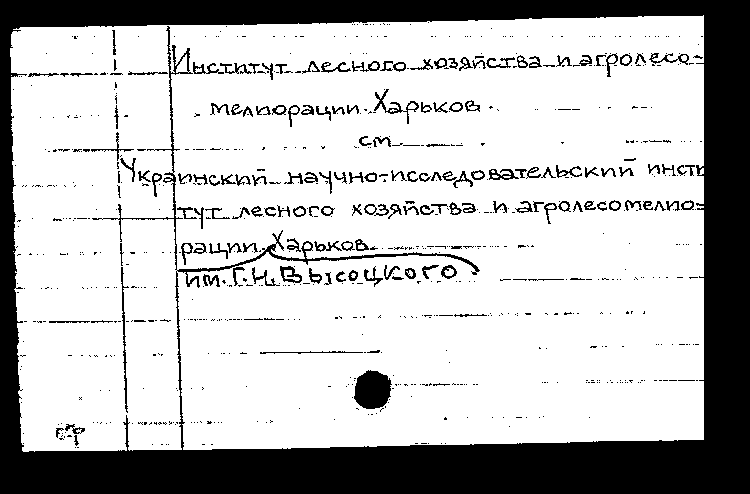 Институт лесного хозяйства и агролесо-
мелиорации. Харьков.
см
Украинский научно-исследовательский инсти
тут лесного хозяйства и агролесомелио-
рации. Харьков
им. Г.Н. Высоцкого